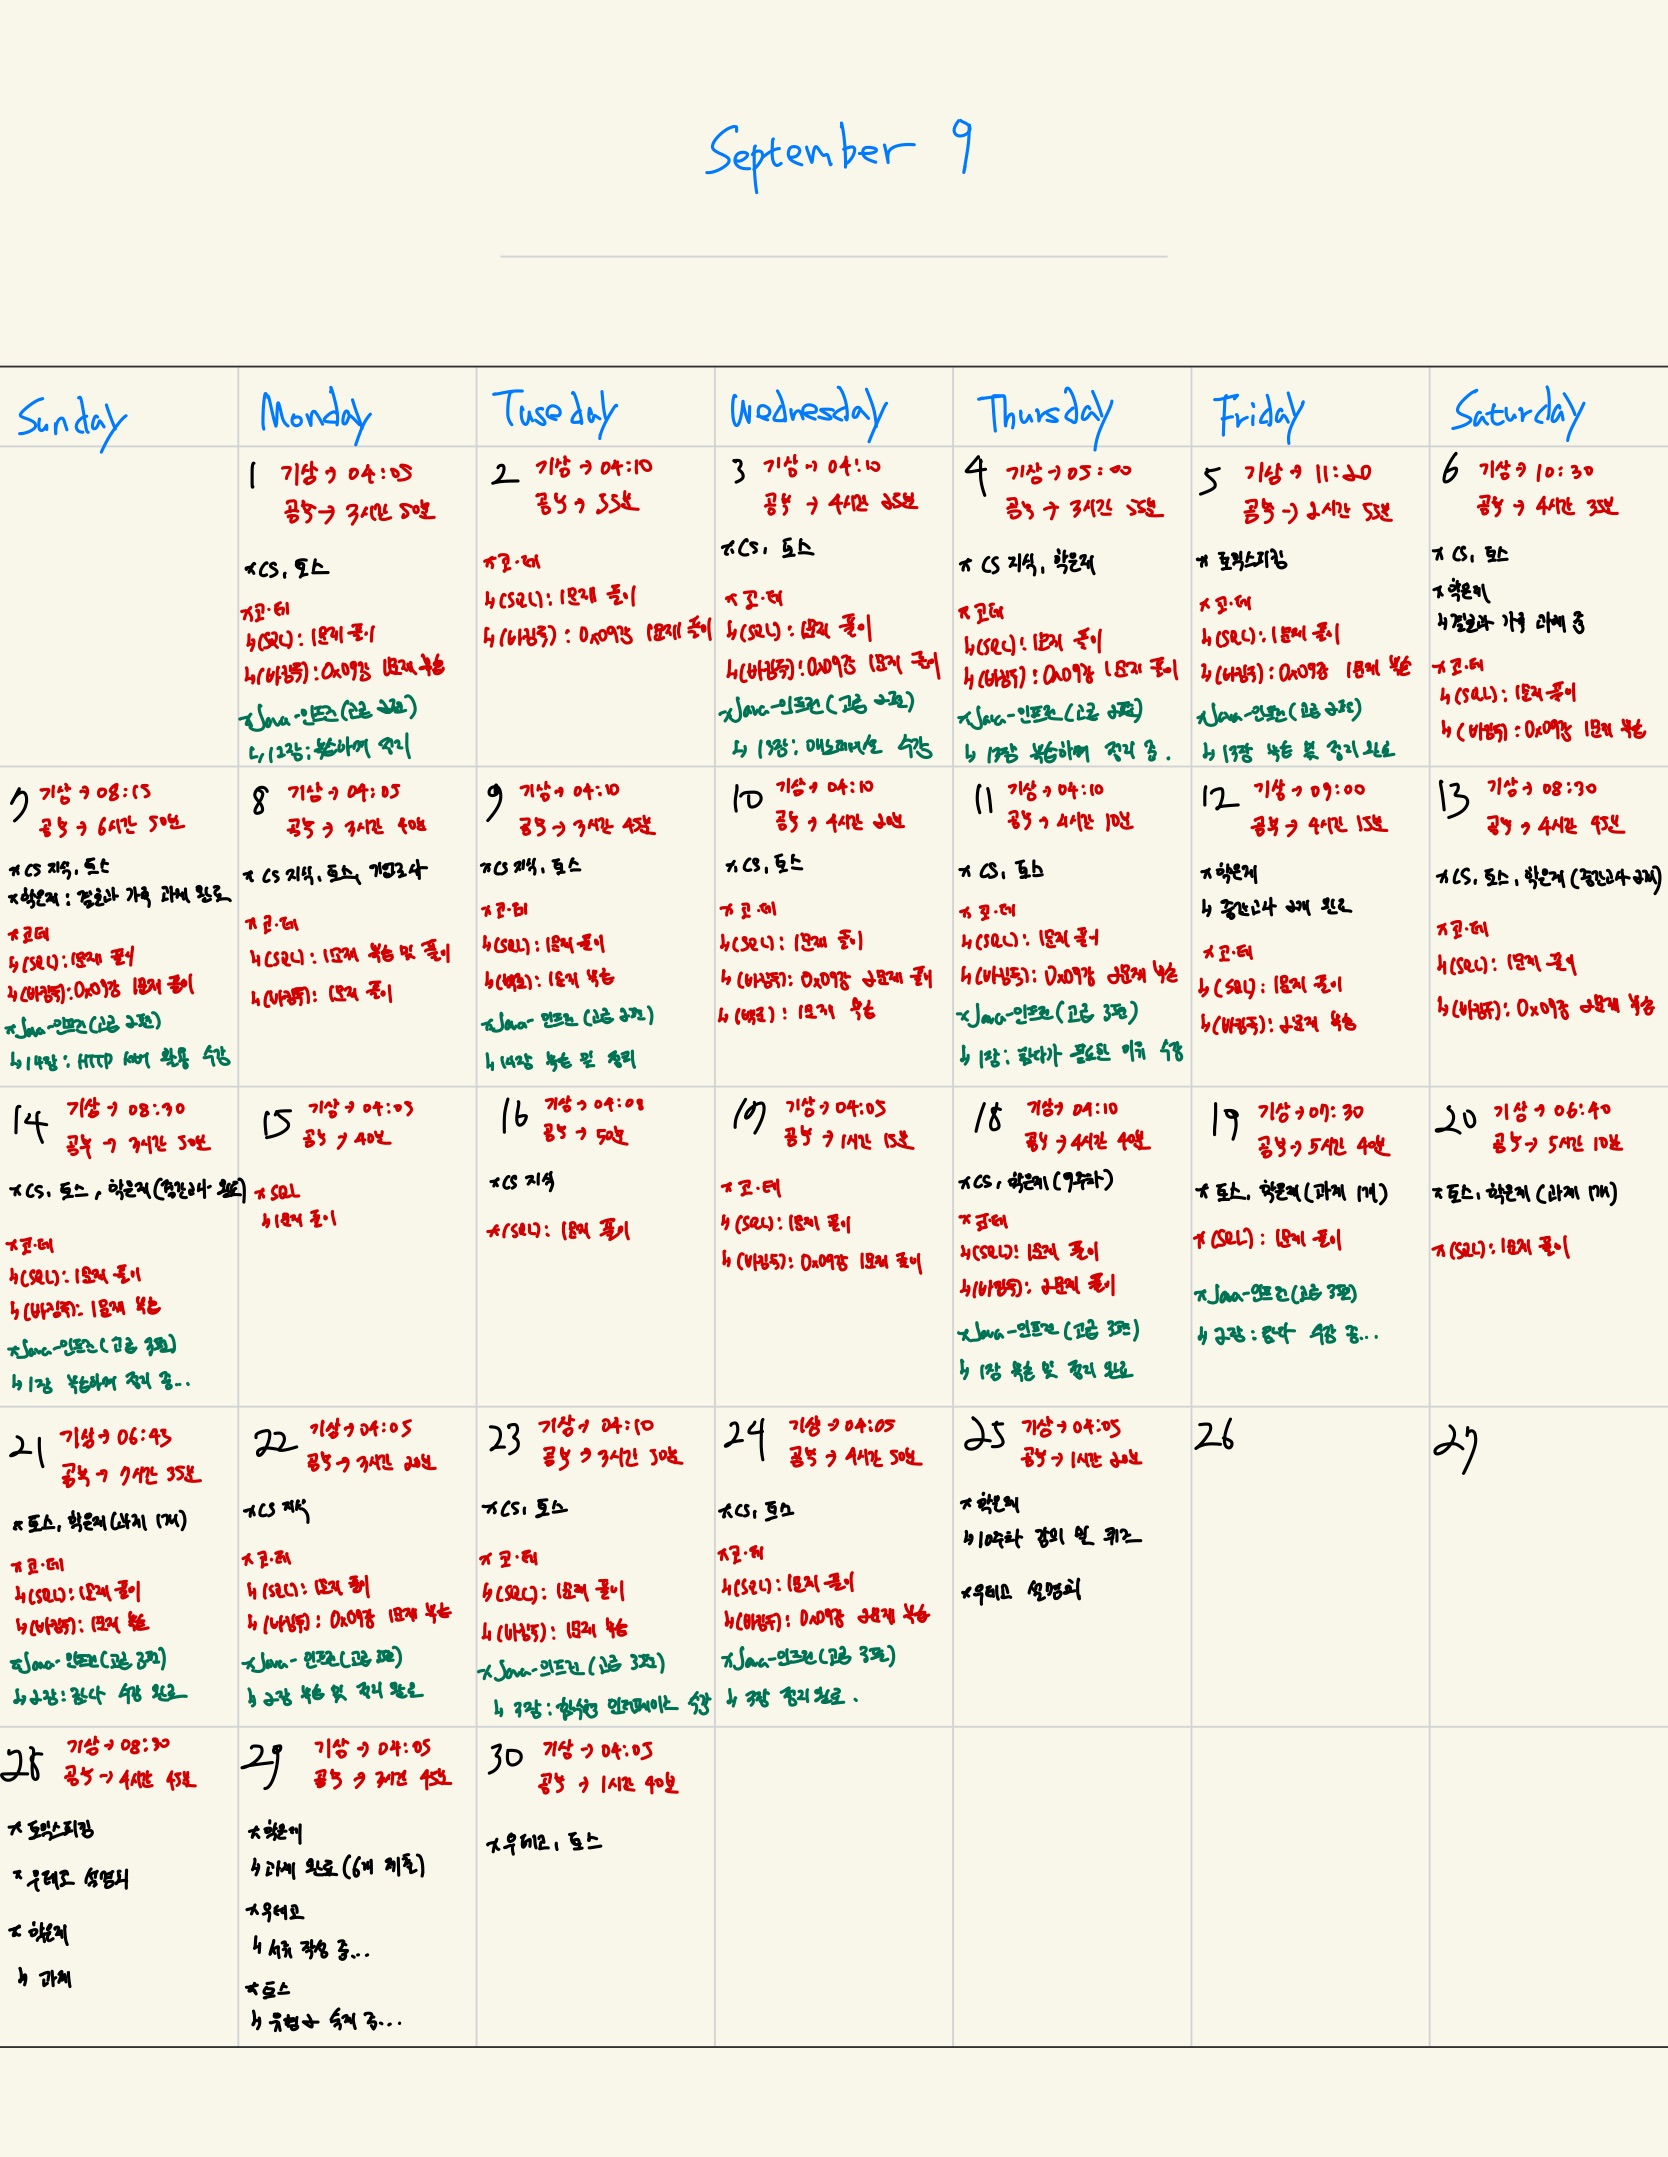 September 9
Sunday
Monday
Tuseday
Wednesday
Thursday
Friday
Saturday
1 기상 → 04:05
공부 → 3시간 50분
*CS, 토스
*코·테
↳(SQL): 1문제 풀이
↳(바킹독): 0x09강 1문제 복습
*Java-인프런(고급 2편)
↳12장: 복습하며 정리
2 기상 → 04:10
공부 → 55분
*코·테
↳(SQL): 1문제 풀이
↳(바킹독): 0x09강 1문제 풀이
3 기상 → 04:10
공부 → 4시간 25분
*CS, 토스
*코·테
↳(SQL): 1문제 풀이
↳(바킹독): 0x09강 1문제 풀이
*Java-인프런(고급 2편)
↳13장: 애노테이션 수강
4 기상 → 05:00
공부 → 3시간 55분
*CS 지식, 학은제
*코테
↳(SQL): 1문제 풀이
↳(바킹독): 0x09강 1문제 풀이
*Java-인프런(고급 2편)
↳13장 복습하며 정리 중.
5 기상 → 11:20
공부 → 2시간 55분
*토익스피킹
*코·테
↳(SQL): 1문제 풀이
↳(바킹독): 0x09강 1문제 복습
*Java-인프런(고급 2편)
↳13장 복습 및 정리 완료
6 기상 → 10:30
공부 → 4시간 35분
*CS, 토스
*학은제
↳결혼과 가족 과제 중
*코·테
↳(SQL): 1문제 풀이
↳(바킹독): 0x09강 1문제 복습
7 기상 → 08:15
공부 → 6시간 50분
*CS 지식, 토스
*학은제: 결혼과 가족 과제 완료
*코테
↳(SQL): 1문제 풀이
↳(바킹독): 0x09강 1문제 풀이
*Java-인프런(고급 2편)
↳14장: HTTP 서버 활용 수강
8 기상 → 04:05
공부 → 3시간 40분
*CS 지식, 토스, 기업조사
*코·테
↳(SQL): 1문제 복습 및 풀이
↳(바킹독): 1문제 풀이
9 기상 → 04:10
공부 → 3시간 45분
*CS 지식, 토스
*코·테
↳(SQL): 1문제 풀이
↳(백준): 1문제 복습
*Java-인프런(고급 2편)
↳14장 복습 및 정리
10 기상 → 04:10
공부 → 4시간 20분
*CS, 토스
*코·테
↳(SQL): 1문제 풀이
↳(바킹독): 0x09강 2문제 풀이
↳(백준): 1문제 복습
11 기상 → 04:10
공부 → 4시간 10분
*CS, 토스
*코·테
↳(SQL): 1문제 풀이
↳(바킹독): 0x09강 2문제 복습
*Java-인프런(고급 3편)
↳1장: 람다가 필요한 이유 수강
12 기상 → 09:00
공부 → 4시간 15분
*학은제
↳중간고사 2개 완료
*코·테
↳(SQL): 1문제 풀이
↳(바킹독): 2문제 복습
13 기상 → 08:30
공부 → 4시간 45분
*CS, 토스, 학은제(중간고사 2개)
*코·테
↳(SQL): 1문제 풀이
↳(바킹독): 0x09강 2문제 복습
14 기상 → 08:30
공부 → 3시간 50분
*CS, 토스, 학은제(중간고사 완료)
*코·테
↳(SQL): 1문제 풀이
↳(바킹독): 1문제 복습
*Java-인프런(고급 3편)
↳1장 복습하며 정리 중...
15 기상 → 04:05
공부 → 40분
*SQL
↳1문제 풀이
16 기상 → 04:08
공부 → 50분
*CS 지식
*(SQL): 1문제 풀이
17 기상 → 04:05
공부 → 1시간 15분
*코·테
↳(SQL): 1문제 풀이
↳(바킹독): 0x09강 1문제 풀이
18 기상 → 04:10
공부 → 4시간 40분
*CS, 학은제(9주차)
*코·테
↳(SQL): 1문제 풀이
↳(바킹독): 2문제 풀이
*Java-인프런(고급 3편)
↳1장 복습 및 정리 완료
19 기상 → 07:30
공부 → 5시간 40분
*토스, 학은제(과제 1개)
*(SQL): 1문제 풀이
*Java-인프런(고급 3편)
↳2장: 람다 수강 중...
20 기상 → 06:40
공부 → 5시간 10분
*토스, 학은제(과제 1개)
*(SQL): 1문제 풀이
21 기상 → 06:45
공부 → 7시간 35분
*토스, 학은제(과제 1개)
*코·테
↳(SQL): 1문제 풀이
↳(바킹독): 1문제 복습
*Java-인프런(고급 3편)
↳2장: 람다 수강 완료
22 기상 → 04:05
공부 → 3시간 20분
*CS 지식
*코·테
↳(SQL): 1문제 풀이
↳(바킹독): 0x09강 1문제 복습
*Java-인프런(고급 3편)
↳2장 복습 및 정리 완료
23 기상 → 04:10
공부 → 3시간 50분
*CS, 토스
*코·테
↳(SQL): 1문제 풀이
↳(바킹독): 1문제 복습
*Java-인프런(고급 3편)
↳3장: 함수형 인터페이스 수강
24 기상 → 04:05
공부 → 4시간 50분
*CS, 토스
*코·테
↳(SQL): 1문제 풀이
↳(바킹독): 0x09강 2문제 복습
*Java-인프런(고급 3편)
↳3장 정리 완료.
25 기상 → 04:05
공부 → 1시간 20분
*학은제
↳10주차 강의 및 퀴즈
*우테코 설명회
26
27
28 기상 → 08:30
공부 → 4시간 45분
*토익스피킹
*우테코 설명회
*학은제
↳과제
29 기상 → 04:05
공부 → 3시간 45분
*학은제
↳과제 완료(6개 제출)
*우테코
↳서류 작성 중...
*토스
↳유형2 숙제 중...
30 기상 → 04:05
공부 → 1시간 40분
*우테코, 토스